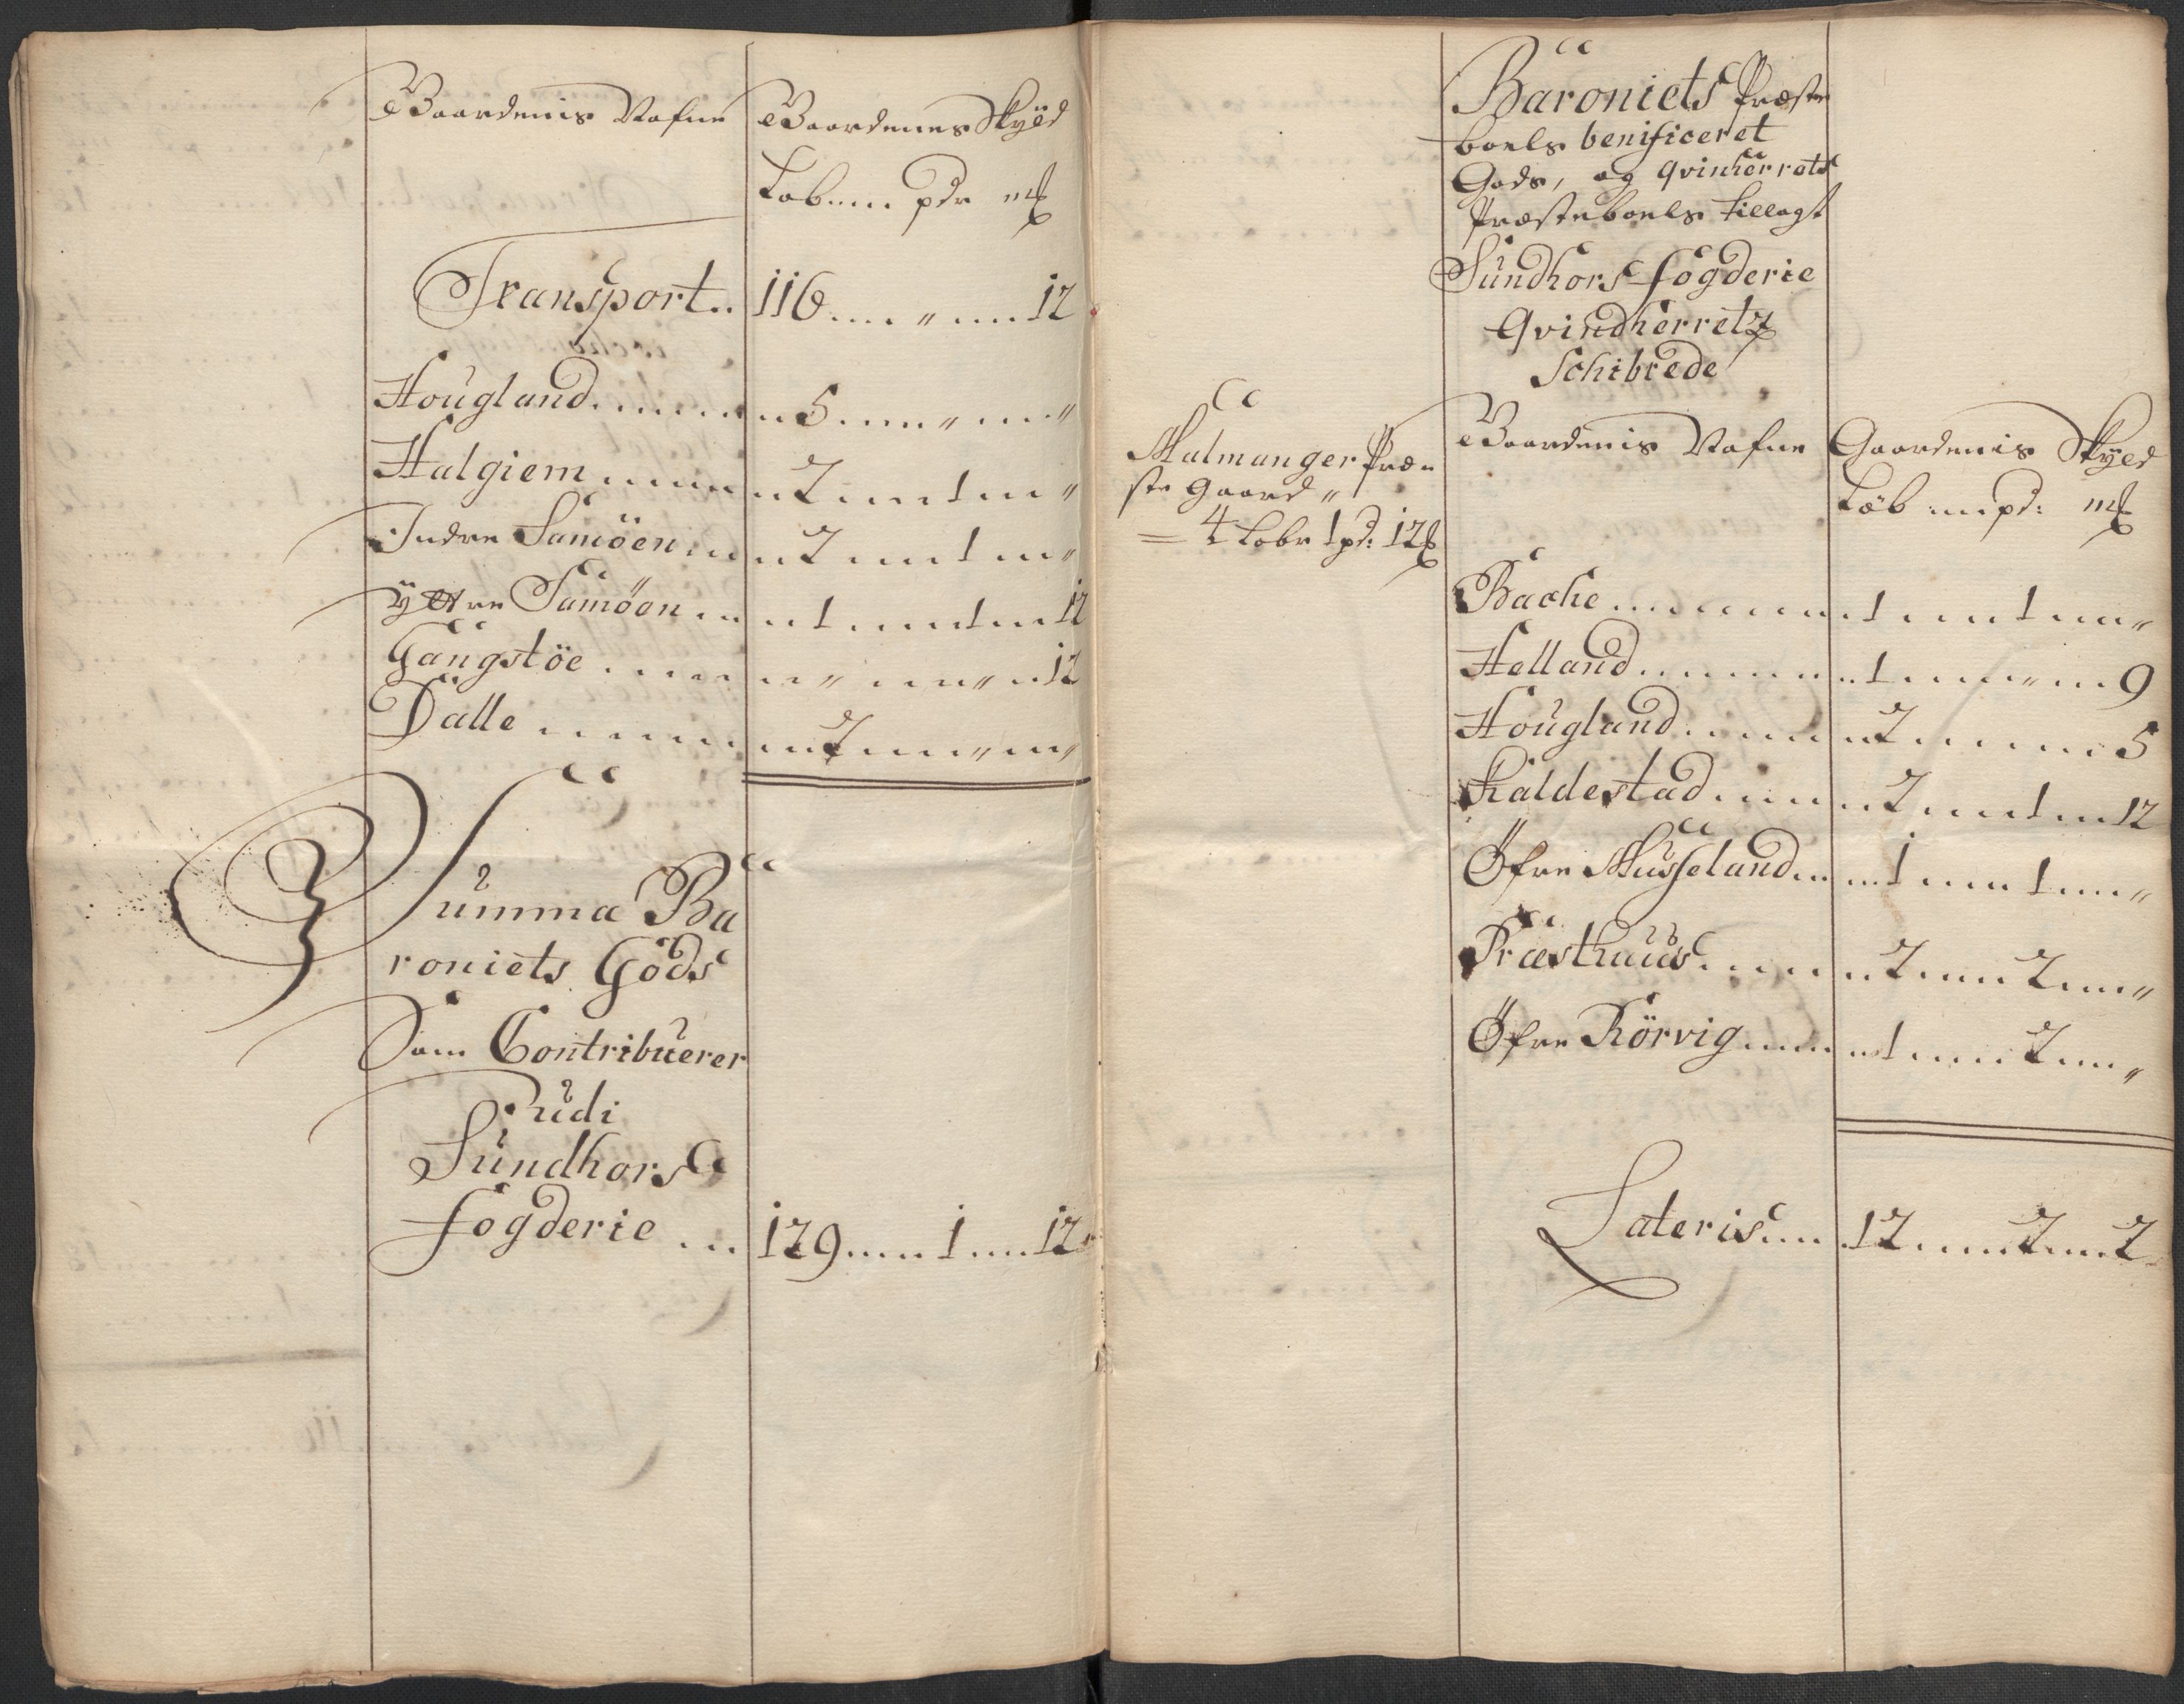 Gaardenis Nafne Gaardenes Skyld
Løb pdr mk
Transport 116 " 12
Hougland 5 " "
Halgiem 2 1 "
Indre Samöen 2 1 "
Ÿttre Samöen 1 1 12
Gangstöe " " 12
Dalle 2 " "
Summa Ba
roniets Gods
Som Contribuerer
udi
Sundhors
fogderie 129 1 12
Baroniets Præste
boels benificeret
Gods, og qvinherrets
Præsteboels tillagt
Sundhors fogderie
Qvindherretz
Schibrede
Malmanger Præ=
ste Gaard "
= 4 Løbr 1 pd: 12 mk
Gaardenis Nafne Gaardenis Skyld
Løb pd: mk
Bache 1 1 "
Helland 1 " 9
Hougland 2 5
Kaldestad 2 1 12
Öfre Musseland 1 1 "
Præsthuus 2 2 "
Öfre Rörvig 1 2 "
Lateris 12 2 2